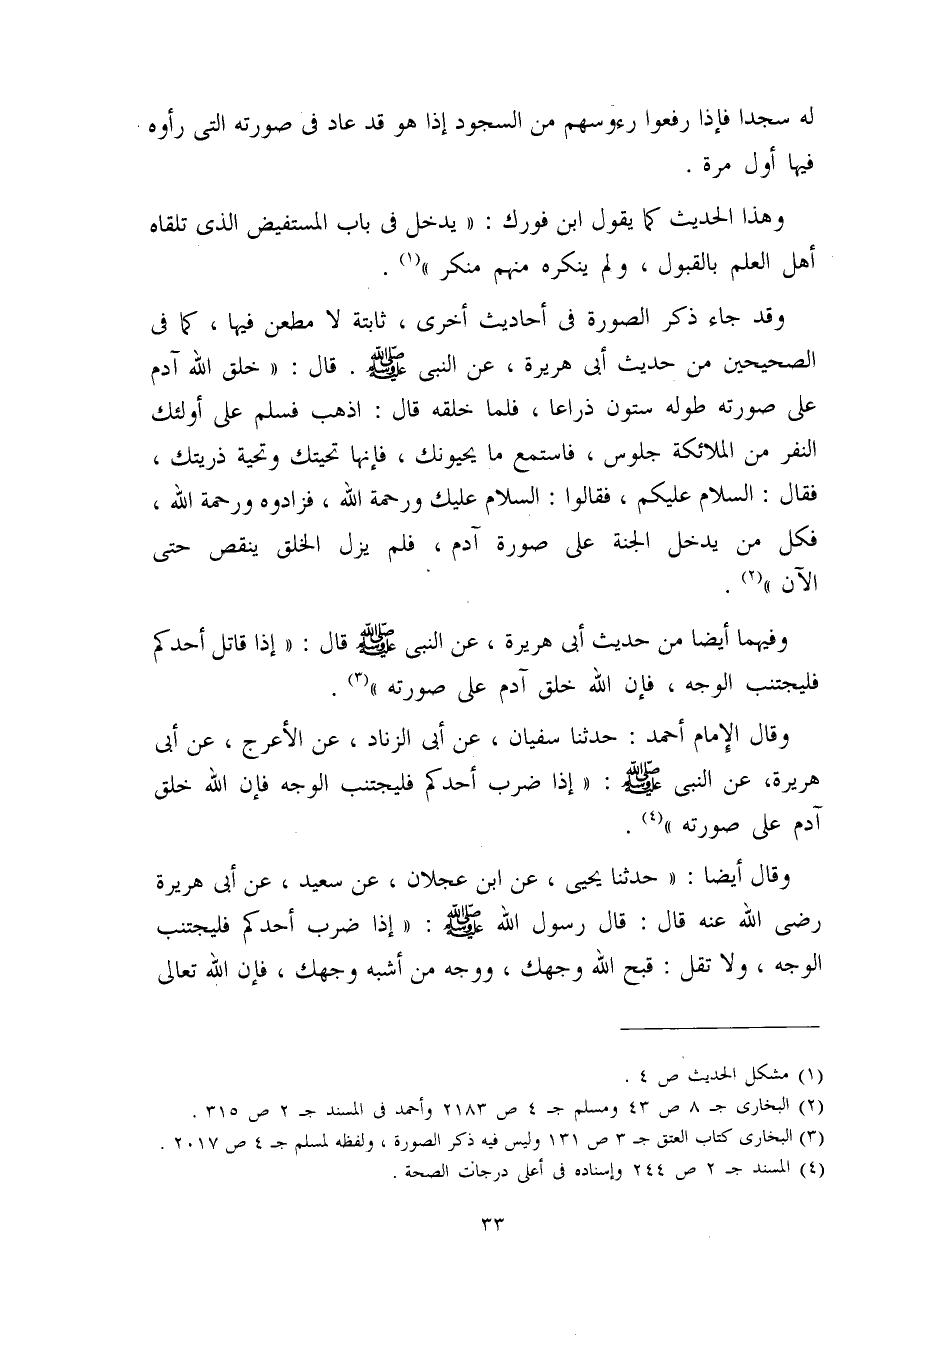 له سجدا فإذا رفعوا رءوسهم من السجود إذا هو قد عاد فى صورته التى رأوه
فيها أول مرة .
وهذا الحديث كما يقول ابن فورك : « يدخل فى باب المستفيض الذى تلقاه
أهل العلم بالقبول ، ولم ينكره منهم منكر »(١) .
وقد جاء ذكر الصورة فى أحاديث أخرى ، ثابتة لا مطعن فيها ، كما فى
الصحيحين من حديث أبى هريرة ، عن النبى ﷺ . قال : « خلق الله آدم
على صورته طوله ستون ذراعا ، فلما خلقه قال : اذهب فسلم على أولئك
النفر من الملائكة جلوس ، فاستمع ما يحيونك ، فإنها تحيتك وتحية ذريتك ،
فقال : السلام عليكم ، فقالوا : السلام عليك ورحمة الله ، فزادوه ورحمة الله ،
فكل من يدخل الجنة على صورة آدم ، فلم يزل الخلق ينقص حتى
الآن »(٢) .
وفيهما أيضا من حديث أبى هريرة ، عن النبى ﷺ قال : « إذا قاتل أحدكم
فليجتنب الوجه ، فإن الله خلق آدم على صورته »(٣) .
وقال الإمام أحمد : حدثنا سفيان ، عن أبى الزناد ، عن الأعرج ، عن أبى
هريرة، عن النبى ﷺ : « إذا ضرب أحدكم فليجتنب الوجه فإن الله خلق
آدم على صورته »(٤) .
وقال أيضا : « حدثنا يحيى ، عن ابن عجلان ، عن سعيد ، عن أبى هريرة
رضى الله عنه قال : قال رسول الله ﷺ : « إذا ضرب أحدكم فليجتنب
الوجه ، ولا تقل : قبح الله وجهك ، ووجه من أشبه وجهك ، فإن الله تعالى
(١) مشكل الحديث ص ٤ .
(٢) البخارى جـ ٨ ص ٤٣ ومسلم جـ ٤ ص ٢١٨٣ وأحمد فى المسند جـ ٢ ص ٣١٥ .
(٣) البخارى كتاب العتق جـ ٣ ص ١٣١ وليس فيه ذكر الصورة ، ولفظه لمسلم جـ ٤ ص ٢٠١٧ .
(٤) المسند جـ ٢ ص ٢٤٤ وإسناده فى أعلى درجات الصحة .
٣٣